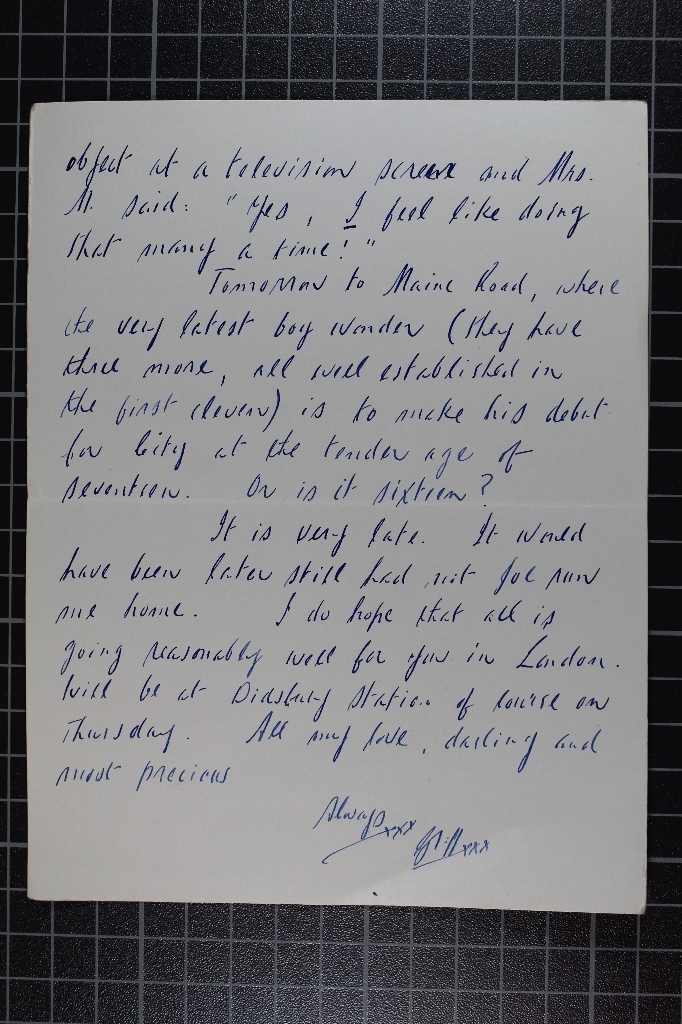 object at a television screen and Mrs.
M. said: "Yes, I feel like doing
that many a time!"
Tomorrow to Maine Road, where
the very latest boy wonder (they have
three more, all well established in
the first eleven) is to make his debut
for City at the tender age of
seventeen. Or is it sixteen?
It is very late. It would
have been later still had not Joe run
me home. I do hope that all is
going reasonably well for you in London.
Will be at Didsbury Station of course on
Thursday. All my love, darling and
most precious
Always xxx
xxx